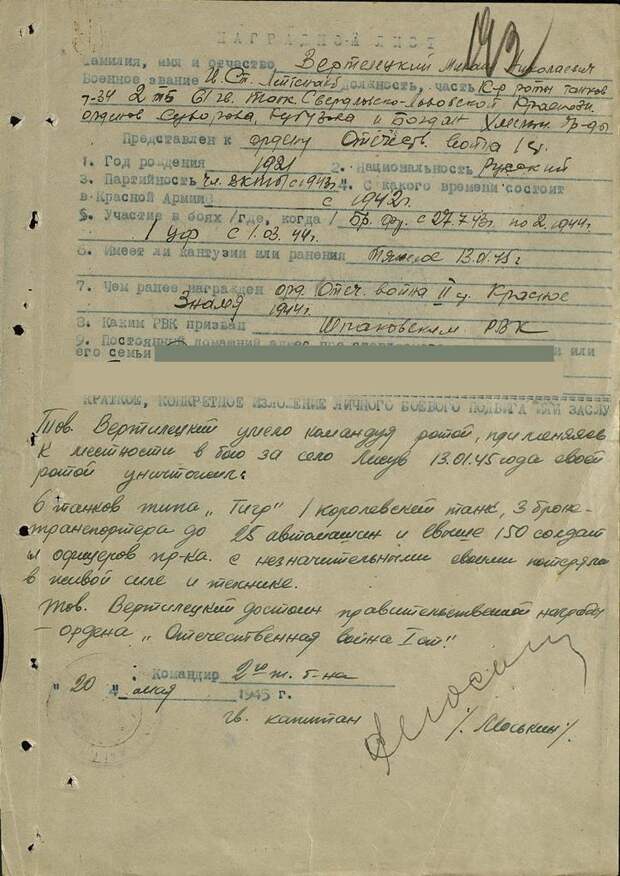 НАГРАДНОЙ ЛИСТ
Фамилия, имя и отчество Вертилецкий Михаил Николаевич
Военное звание И.Ст. Лейтенант должность, часть К-р роты танков
Т-34 2 тб 61 гв. танк. Свердловско-Львовской Краснозн.
орденов Суворова, Кутузова и Богдан Хмельн. бр-ды
Представлен к ордену Отечеств. война I ст.
1. Год рождения 1921 2. Национальность Русский
3. Партийность чл. ВКП(б) с 1943г. 4. С какого времени состоит
в Красной Армии с 1942г.
5. Участие в боях /где, когда/ Бр. фр. с 27.7.43г. по 2.1944г.
1 УФ с 1.03.44г.
6. Имеет ли кантузии или ранения тяжелое 13.01.45г
7. Чем ранее награжден орд. Отеч. война II ст. Красное
Знамя 1944г.
8. Каким РВК призван Шпаковским РВК
9. Постоянный домашний адрес или
его семьи
КРАТКОЕ, КОНКРЕТНОЕ ИЗЛОЖЕНИЕ ЛИЧНОГО БОЕВОГО ПОДВИГА ИЛИ ЗАСЛУ
Тов. Вертилецкий умело командуя ротой, применяясь
к местности в бою за село Лисув 13.01.45 года своей
ротой уничтожил:
6 танков типа „Тигр" 1 королевский танк, 3 броне-
транспортера до 25 автомашин и свыше 150 солдат
и офицеров пр-ка. с незначительными своими потерями
в живой силе и технике.
Тов. Вертилецкий достоин правительственной награды
– ордена „Отечественная война I ст"
Командир 2го т. б-на
"20" мая 1945 г.
гв. капитан /Моськин/.